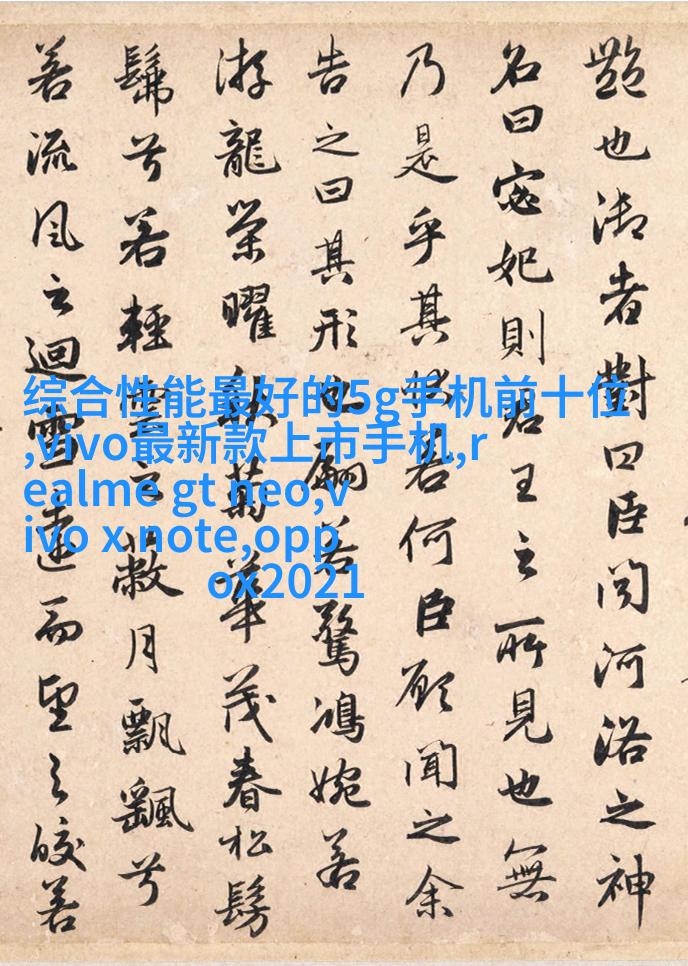 艷也御者對曰臣聞河洛之神
名曰宓妃則君王之所見也無
乃是乎其狀若何臣願聞之余
告之曰其形也翩若驚鴻婉若
游龍榮曜秋菊華茂春松髣
髴兮若輕雲之蔽月飄颻兮
若流風之迴雪遠而望之皎若
综合性能最好的5g手机前十位
,vivo最新款上市手机,r
ealme gt neo,v
ivo x note,opp
ox2021